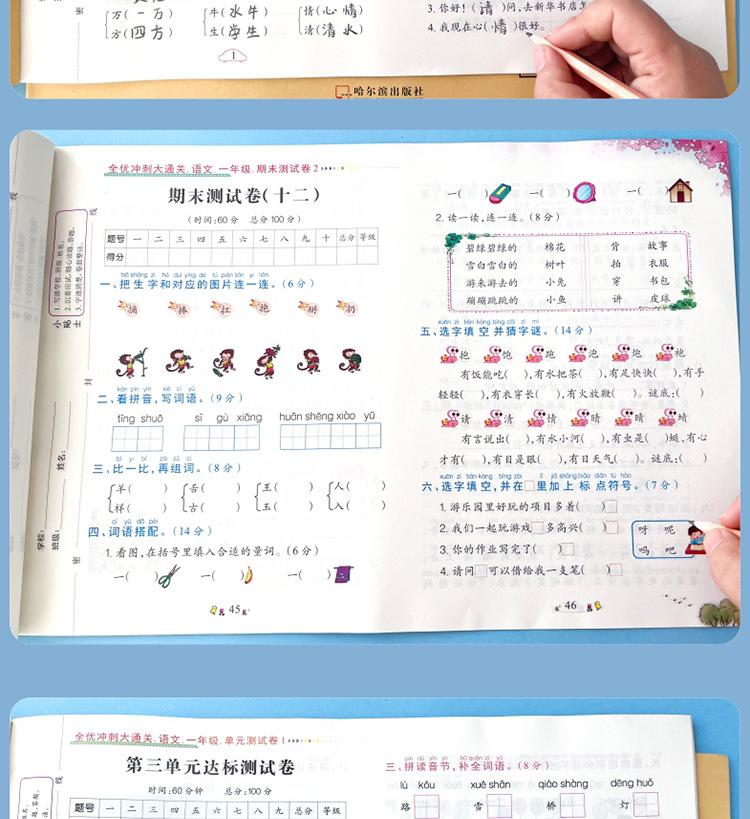 万(一万)
方(四方)
牛(水牛)
生(学生)
情(心情)
清(清水)
3. 你好!(请)问,去新华书店怎
4. 我现在心(情)很好。
密
1
哈尔滨出版社
全优冲刺大通关.语文 一年级.期末测试卷2
期末测试卷(十二)
(时间:60分 总分100分)
题号 一 二 三 四 五 六 七 八 九 十 总分 等级
得分
小贴士
1.写清学校、班级、姓名。
线
封
密
学校:
班级:
姓名:
一、把生字和对应的图片连一连。(6分)
摘 捧 扛 抱
二、看拼音,写词语。(9分)
tīng shuō sī gù xiāng huān shēng xiào yǔ
三、比一比,再组词。(8分)
羊( ) 舌( ) 王( ) 人( )
样( ) 古( ) 玉( ) 入( )
四、词语搭配。(14分)
1. 看图,在括号里填入合适的量词。(6分)
一( ) 一( ) 一( )
45
一( ) 一( ) 一( )
2. 读一读,连一连。(8分)
碧绿碧绿的 棉花 背 故事
雪白雪白的 树叶 拍 衣服
游来游去的 小兔 穿 书包
蹦蹦跳跳的 小鱼 讲 皮球
五、选字填空并猜字谜。(14分)
抱 饱 跑 泡 炮 袍
有饭能吃( ),有水把茶( ),有足快快( ),有手
轻轻( ),有衣穿长( ),有火放鞭( )。谜底:( )
请 清 情 晴 睛 蜻
有言说出( ),有水小河( ),有虫是( )蜓,有心
才有( ),有目是眼( ),有日天气( )。谜底:( )
六、选字填空,并在□里加上标点符号。(7分)
1. 游乐园里好玩的项目多着( )□
2. 我们一起玩游戏□多高兴( )□
3. 你的作业写完了( )□
4. 请问□可以借给我一支笔( )□
呀 呢
吗 吧
46
全优冲刺大通关.语文.一年级.单元测试卷1
第三单元达标测试卷
时间:60分钟 总分:100分
题号 一 二 三 四 五 六 七 八 总分 等级
线
三、拼读音节,补全词语。(8分)
lù kǒu xuě shān qiáo shàng dēng huǒ
路 雪 桥 灯